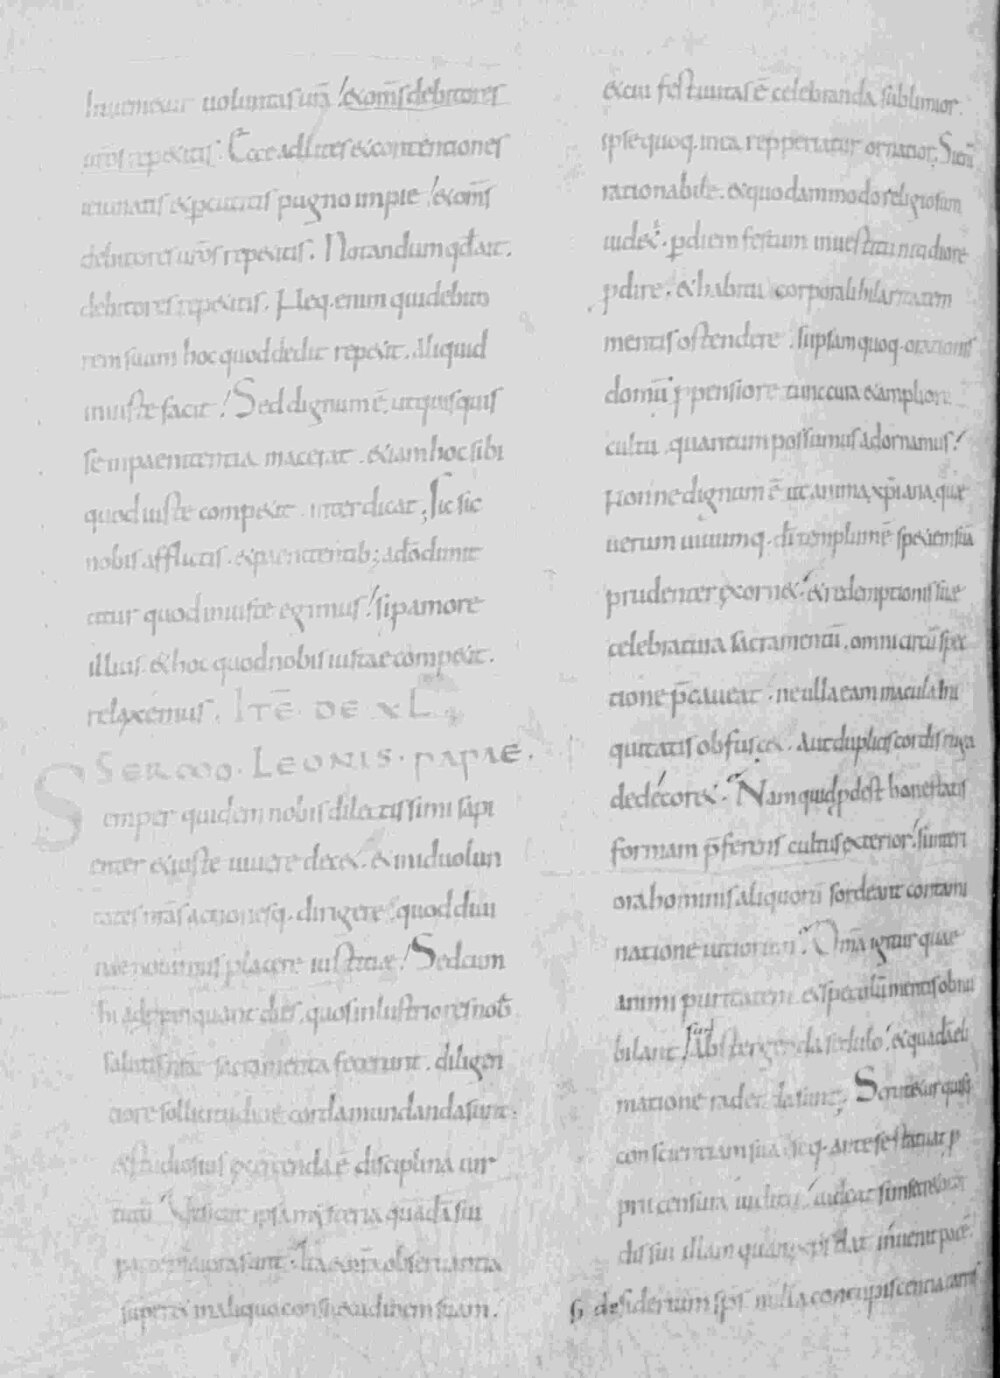 Inuenietur uoluntas urã. &om̃s debitores
uros repetitis. Ecce ad lites & contentiones
ieiunatis & percutitis pugno impie. &om̃s
debitores uros repetitis. Notandum qđ ait.
debitores repetitis. Neq. enim qui debito
rem suam hoc quod dedit repetit. aliquid
iniuste facit. Sed dignum ẽ, ut quisquis
se in paenitentia macerat. &iam hoc sibi
quod iuste compe&it. interdicat; sic sic
nobis afflictis. & paenitentib; a dõ dimit
titur quod iniuste egimus. si p amore
illius. & hoc quod nobis iustae compe&it.
relaxemus. ITẼ DE XL
SERMO. LEONIS. PAPAE.
Semper quidem nobis dilectissimi sapi
enter & iuste uiuere dec&. & in id uolun
tates nrãs actionesq. dirigere. quod diui
nae nouimus placere iustitiae. Sed cum
hi adpropinquant dies, quos inlustriores nob
salutis nrae sacramenta fecerunt. diligen
tiore sollicitudine corda mundanda sunt.
& studiosius exercenda ẽ disciplina uir
tutũ. Ut sicut ipsa mysteria quadã sui
parte maiora sunt. Ita & nrã obseruantia
super& in aliquo consuetudinem suam.
& cui festiuitas ẽ celebranda sublimior.
ipse quoq. in ea repperiatur ornatior. Si eni
rationabile. & quodammodo religiosum
uidet. p diem festum in uestitu nitidiore
pdire. & habitu corporali hilaritatem
mentis ostendere. si ipsam quoq. orationis
domũ ppensiore tunc cura & ampliore
cultu quantum possumus adornamus.
Nonne dignum ẽ ut anima xp̃iana, quae
uerum uiuumq. dĩ templum ẽ speciem suã
prudenter exorn&. & redemptionis suae
celebratura sacramentũ. omni circũspec
tione p̃caueat. ne ulla eam macula ini
quitatis obfusc&. Aut duplicis cordis ruga
dedecor&. Nam quid pdest honestatis
formam p̃ferens cultus exterior. si interi
ora hominis aliquorũ sordeant contami
natione uitiorum. Omã igitur quae
animi puritatem. & speculũ mentis obnu
bilant. sunt Abstergenda sedulo. & quadã eli
matione radenda sunt; Scrutetur quisq;
conscientiam suã, seq. ante se statuat p
prii censura iudicii. uideat si in secr&o cor
dis sui illam quam xp̃s dat. inuenit pacẽ.
si desiderium sp̃s nulla concupiscentia carnis